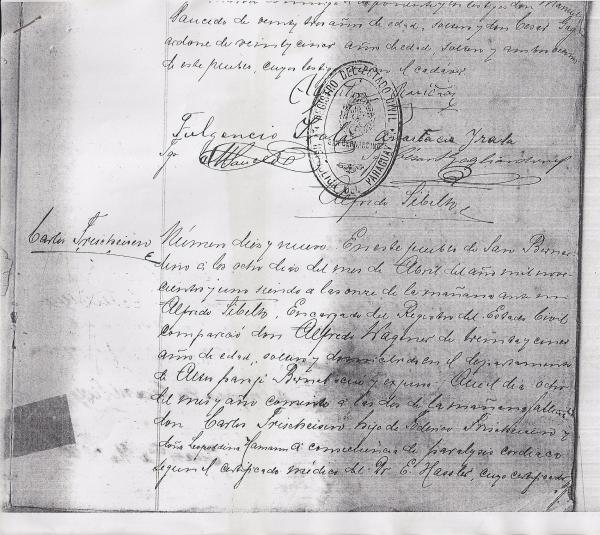 Saucedo de veinte y tres años de edad, soltero y don Cesar Gag
de veinte y cinco años de edad, soltero y ambos vecinos
de este pueblo, cuyos testigos el cadaver
REGISTRO DEL ESTADO CIVIL
REPUBLICA DEL PARAGUAY
SAN BERNARDINO
Fulgencio Anastacio Prats
Tgo
Alfredo Sibelts
Carlos Trescheisero
Número diez y nueve En este pueblo de San Bernar
dino á los ocho dias del mes de Abril del año mil nove
cientos y uno siendo á las once de la mañana ante mi
Alfredo Sibelts, Encargado del Registro del Estado Civil
compareció don Alfredo Wagner de treinta y cinco
años de edad, soltero y domiciliado en el departamento
de Altos y expuso: Que el dia ocho
del mes y año corriente á las dos de la mañana falleció
don Carlos Trescheisero hijo de Federico Trescheisero y
doña Leopoldina Hamann á consecuencia de paralysis cordiaca
segun el certificado médico del Dr E. Hassler, cuyo certificado